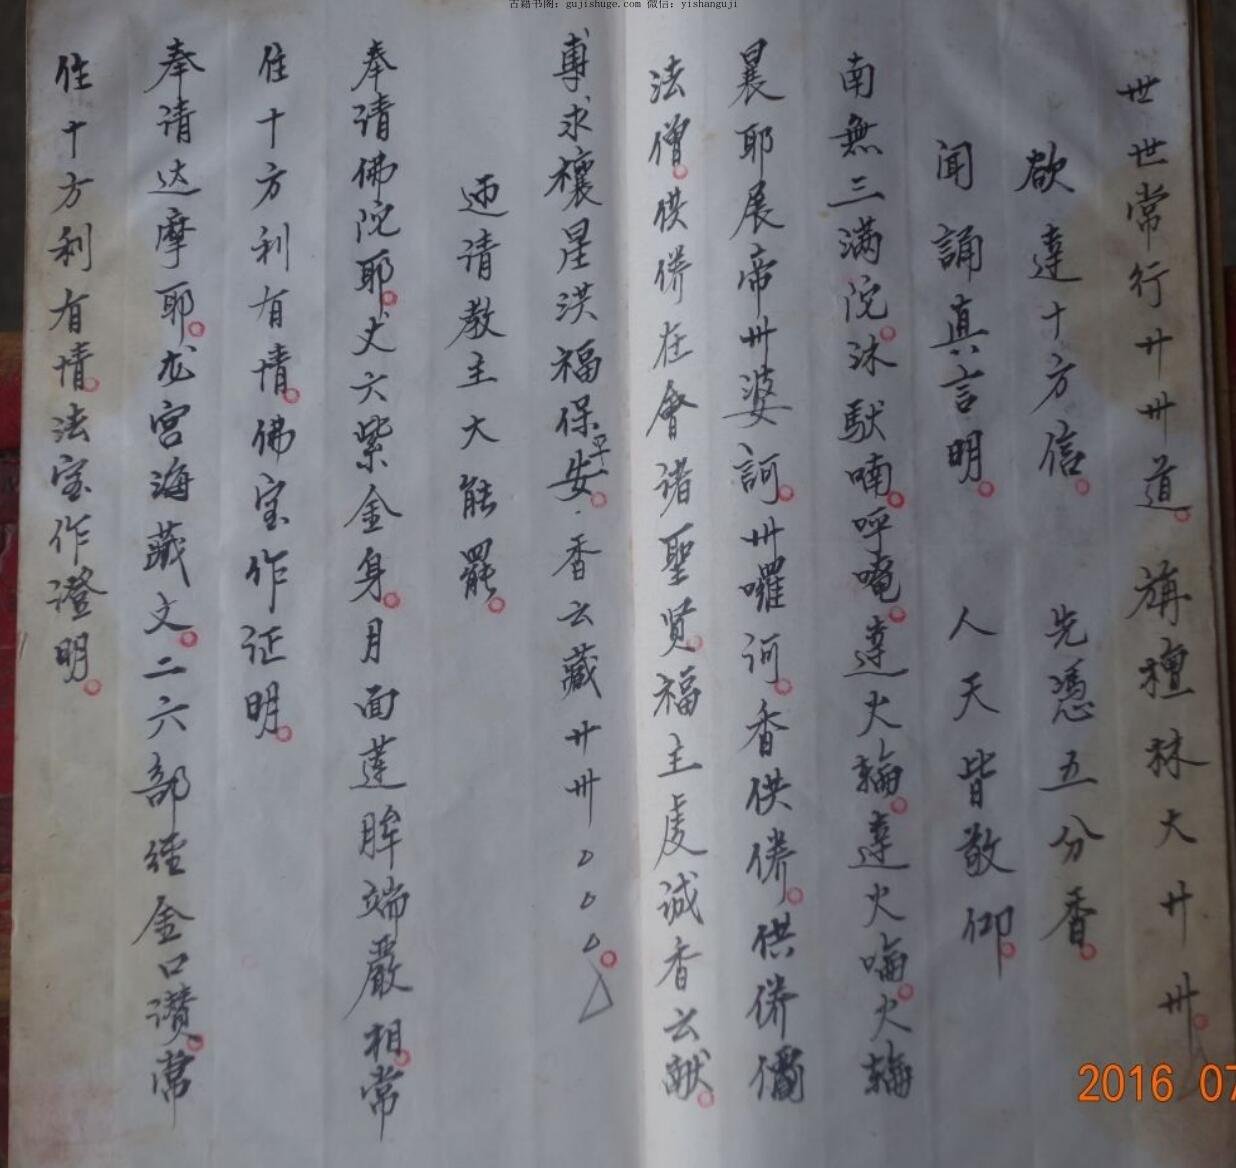 古籍书阁：gujishuge.com 微信：yishanguji
世世常行廾卅道。旃檀林大廾卅。
欲達十方信。先憑五分香。
闻誦真言明。人天皆敬仰。
南無三满陀。沐馱喃。呼唵。達火輪。達火喻。火輪
曩耶展帝卅婆訶。卅囉诃。香供侪。供侪儞
法僧。供侪在會诸聖贤。福主虔诚香云献。
専求禳星洪福保平安。香云藏廾卅
迊请教主大能罷。
奉请佛陀耶。丈六紫金身。月面莲眸端嚴相。常
住十方利有情。佛宝作证明。
奉请达摩耶。龙宫海藏文。二六部经金口讚。常
住十方利有情。法宝作澄明。
2016 07